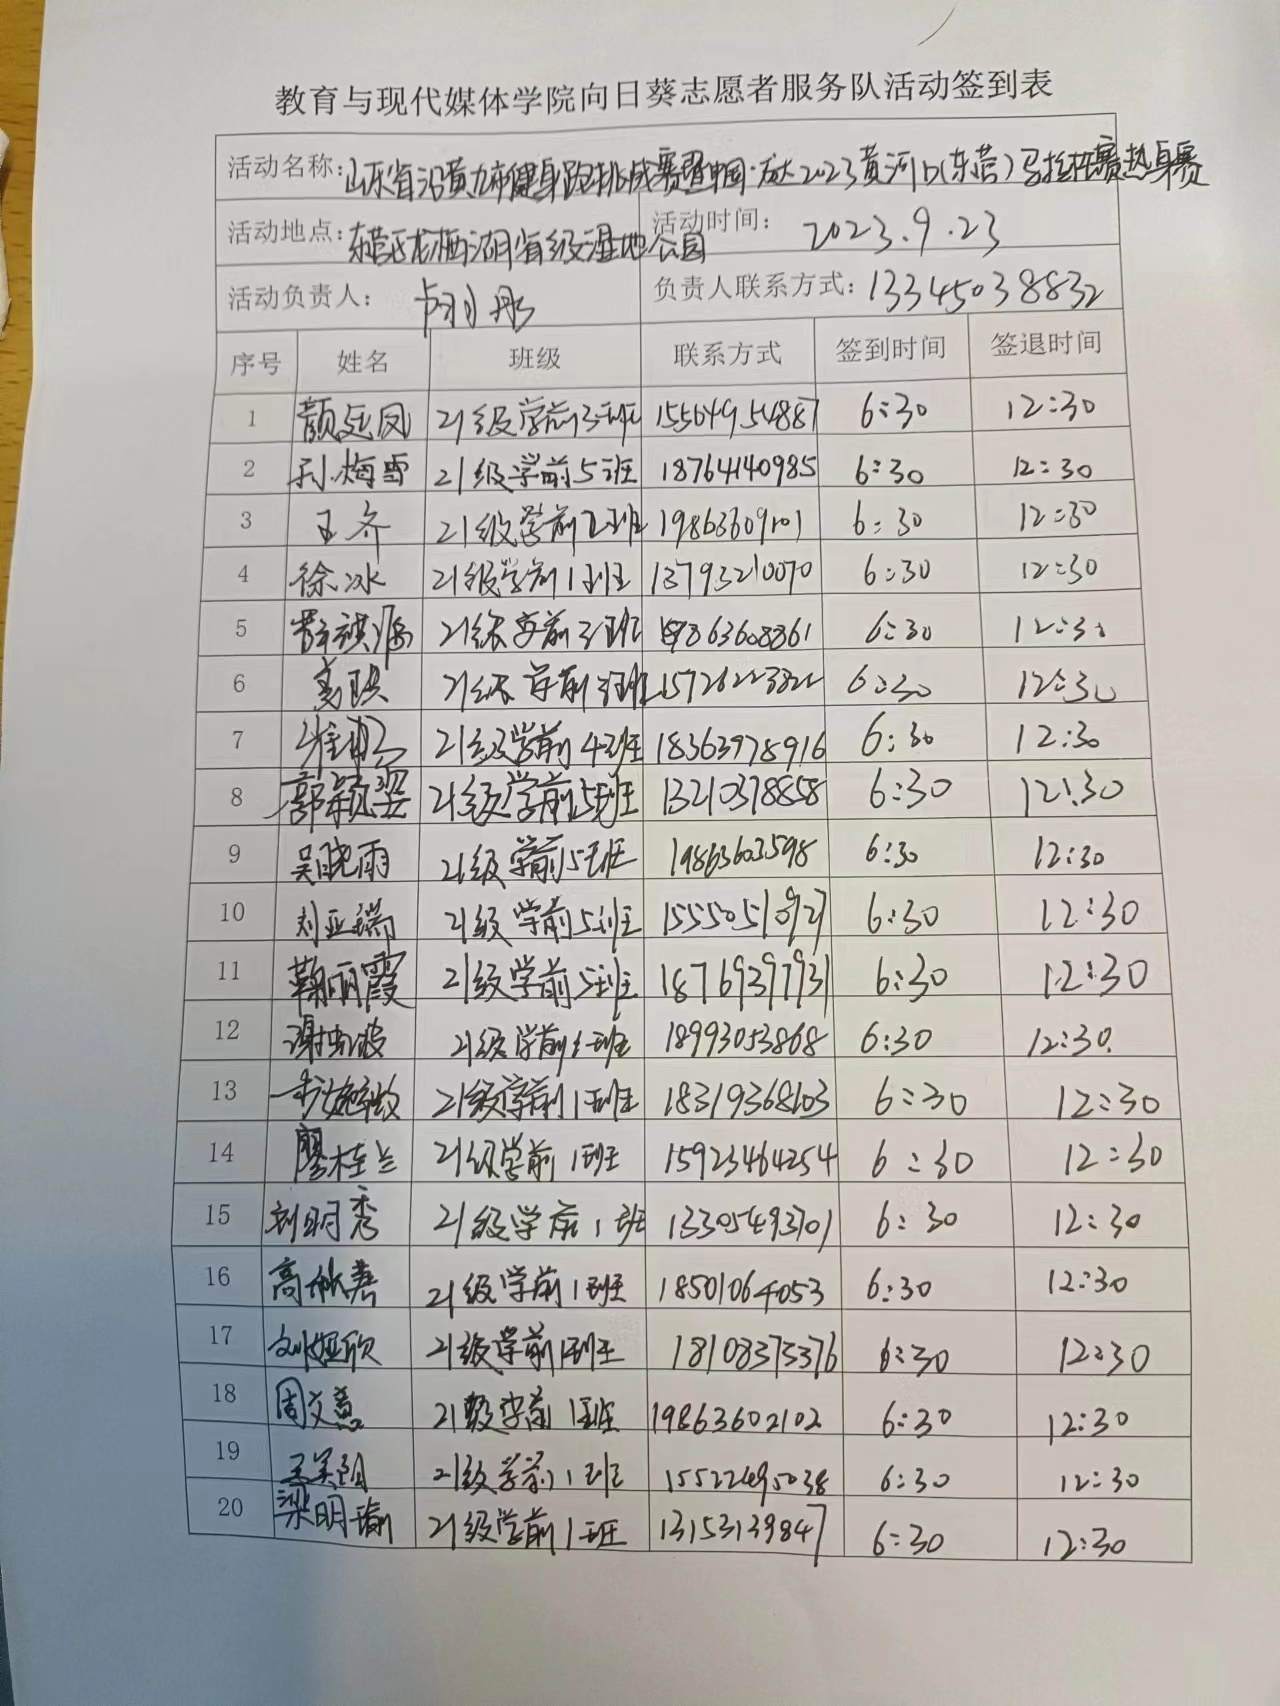 教育与现代媒体学院向日葵志愿者服务队活动签到表
活动名称：山东省沿黄九市健身跑挑战赛暨中国·东营2023黄河口(东营)马拉松赛热身赛
活动地点：东营区龙栖湖省级湿地公园 活动时间：2023.9.23
活动负责人： 负责人联系方式：13345038832
序号 姓名 班级 联系方式 签到时间 签退时间
1 颜廷凤 21级学前3班 15564954887 6:30 12:30
2 孙梅雪 21级学前5班 18764140985 6:30 12:30
3 王齐 21级学前2班 19863609101 6:30 12:30
4 徐冰 21级学前1班 13793210070 6:30 12:30
5 21级学前3班 19863608861 6:30 12:30
6 21级学前3班 15726223822 6:30 12:30
7 21级学前4班 18363978916 6:30 12:30
8 郭颖姿 21级学前5班 13210378858 6:30 12:30
9 吴晓雨 21级学前5班 19863603598 6:30 12:30
10 刘亚端 21级学前5班 15550510927 6:30 12:30
11 鞠丽霞 21级学前5班 18769397931 6:30 12:30
12 谢虹波 21级学前1班 18993053868 6:30 12:30
13 21级学前1班 18319368103 6:30 12:30
14 廖桂兰 21级学前1班 15923464254 6:30 12:30
15 刘明秀 21级学前1班 13305493701 6:30 12:30
16 高 21级学前1班 18501064053 6:30 12:30
17 刘娅欣 21级学前1班 18108375376 6:30 12:30
18 周文慧 21级学前1班 19863602102 6:30 12:30
19 王美 21级学前1班 15522495038 6:30 12:30
20 梁明瑜 21级学前1班 13153139847 6:30 12:30